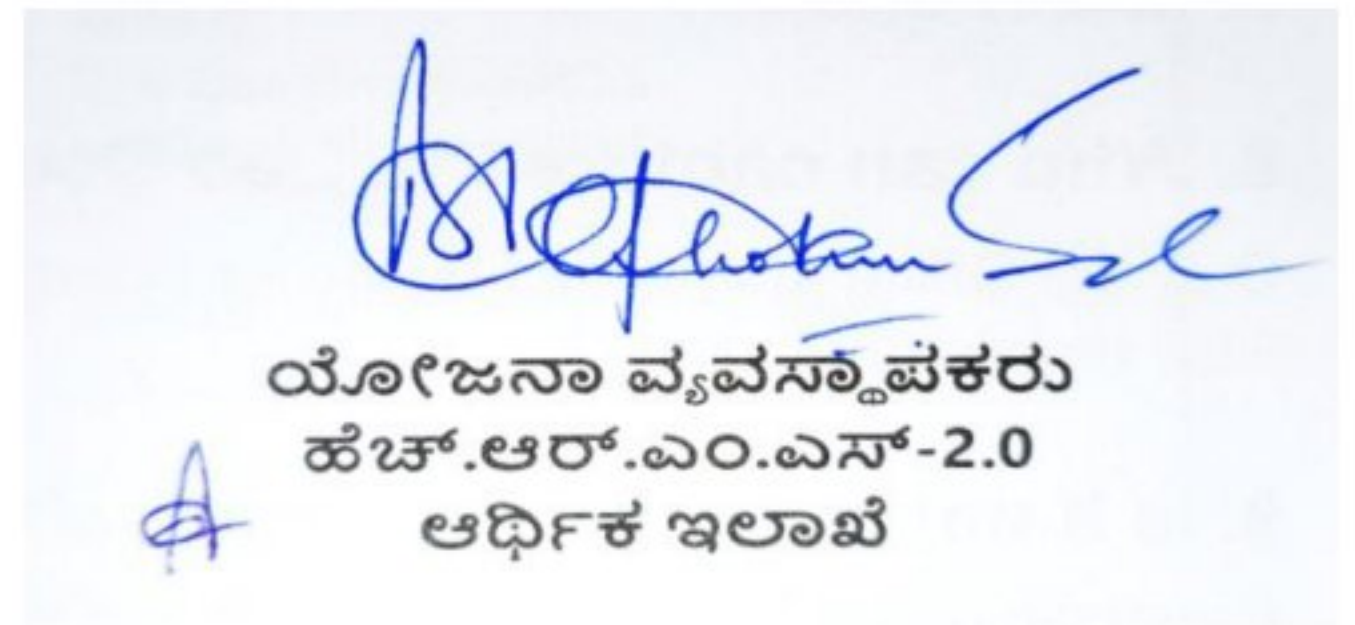 ಯೋಜನಾ ವ್ಯವಸ್ಥಾಪಕರು
ಹೆಚ್.ಆರ್.ಎಂ.ಎಸ್-2.0
ಆರ್ಥಿಕ ಇಲಾಖೆ